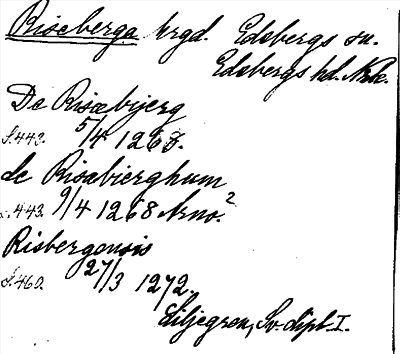 Riseberga hrgd. Edsbergs sn.
Edsbergs hd. Nrke.
De Risæbijerg
S. 443. 5/4 1268.
de Risabierghum
S. 443. 9/4 1268 Arno.2
Risbergensis
S. 460. 27/3 1272.
Liljegren, Sv. dipl. I.